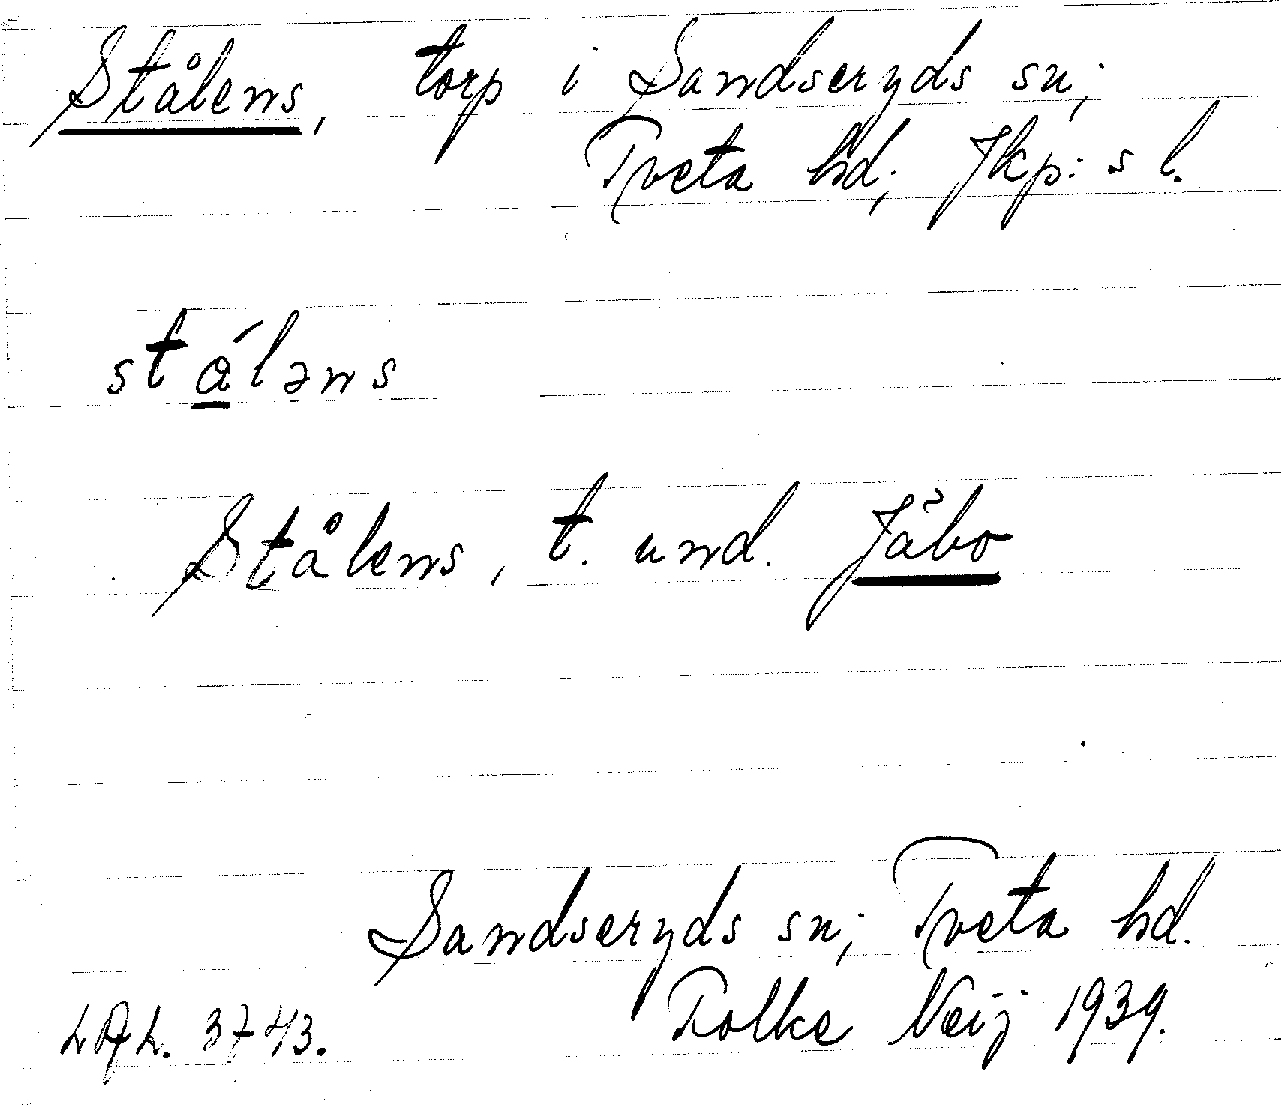 Stålens, torp i Sandseryds sn;
Tveta hd; Jkp: s l.
stǻləns
Stålens, t. und. Jåbo
Sandseryds sn; Tveta hd.
3743. Folke Neij 1939.